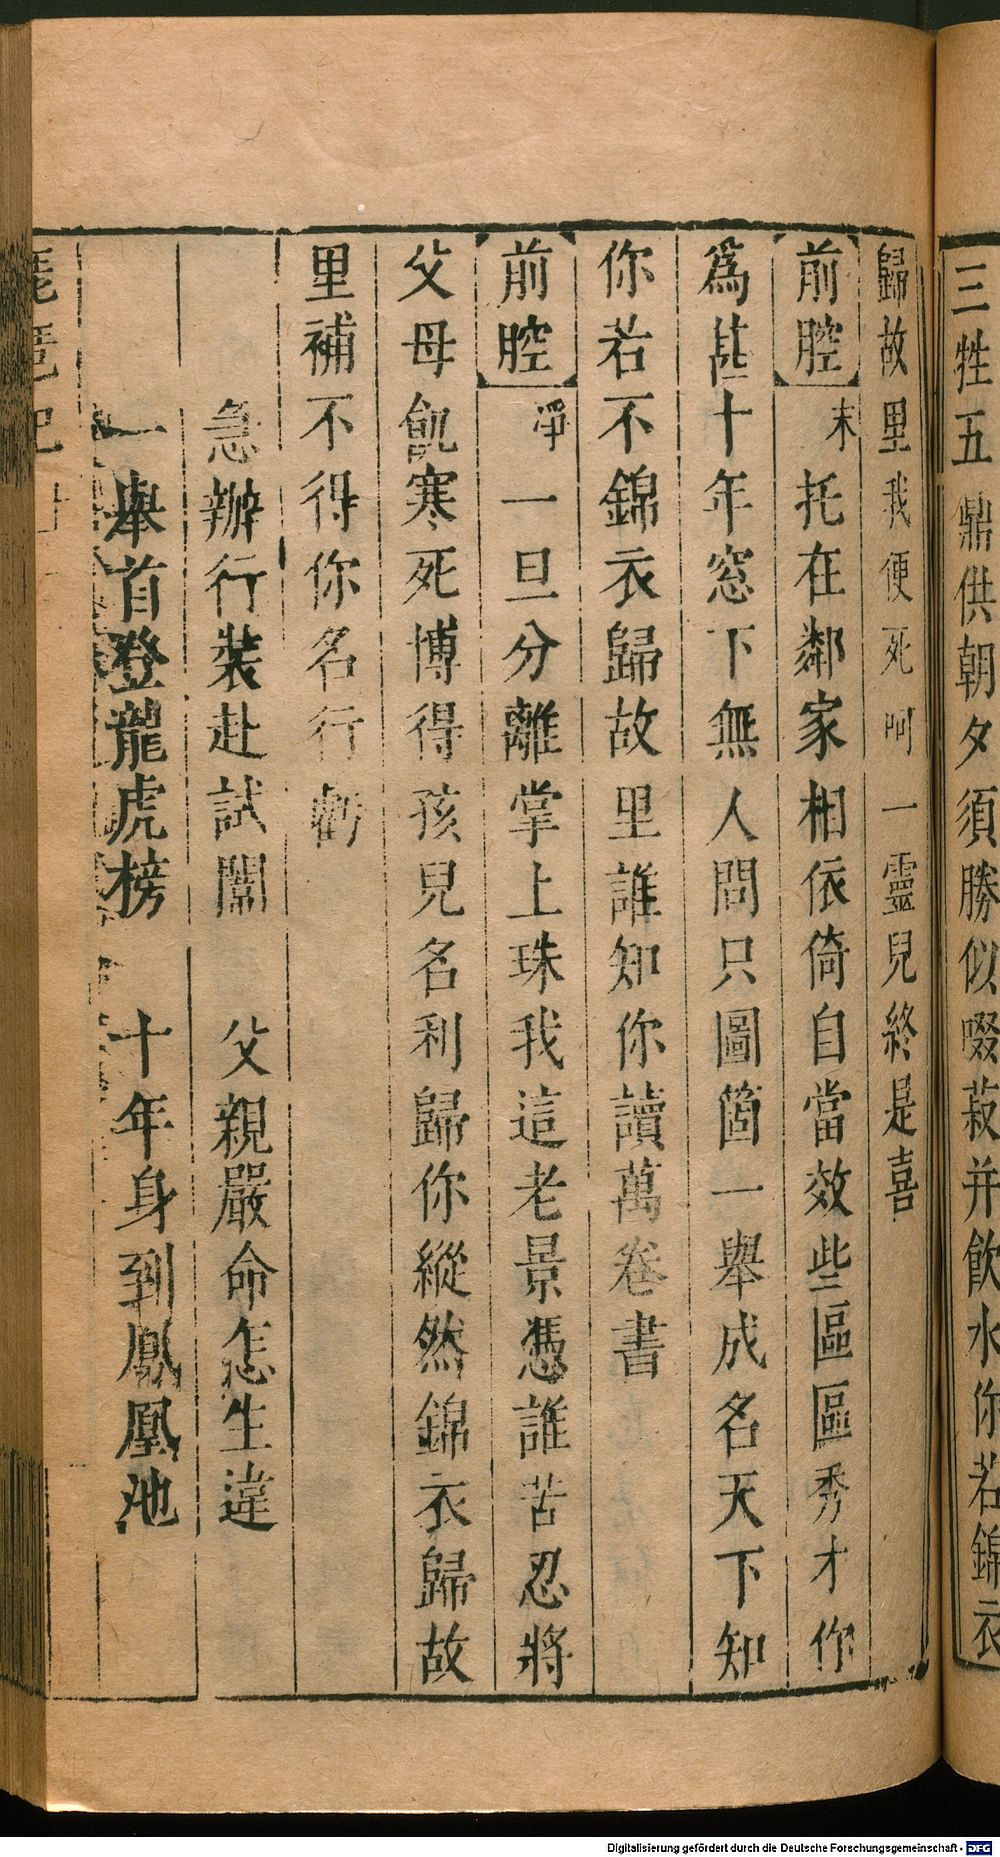 三牲五鼎供朝夕須勝似啜菽并飲水你若錦衣
歸故里我便死呵一靈兒終是喜
前腔 末 托在鄰家相依倚自當效些區區秀才你
爲甚十年窓下無人問只圖箇一舉成名天下知
你若不錦衣歸故里誰知你讀萬卷書
前腔 凈 一旦分離掌上珠我這老景憑誰苦忍將
父母飢寒死博得孩兒名利歸你縱然錦衣歸故
里補不得你名行虧
急辦行裝赴試闈 父親嚴命怎生違
一舉首登龍虎榜 十年身到鳳凰池
琵琶記
Digitalisierung gefördert durch die Deutsche Forschungsgemeinschaft - DFG